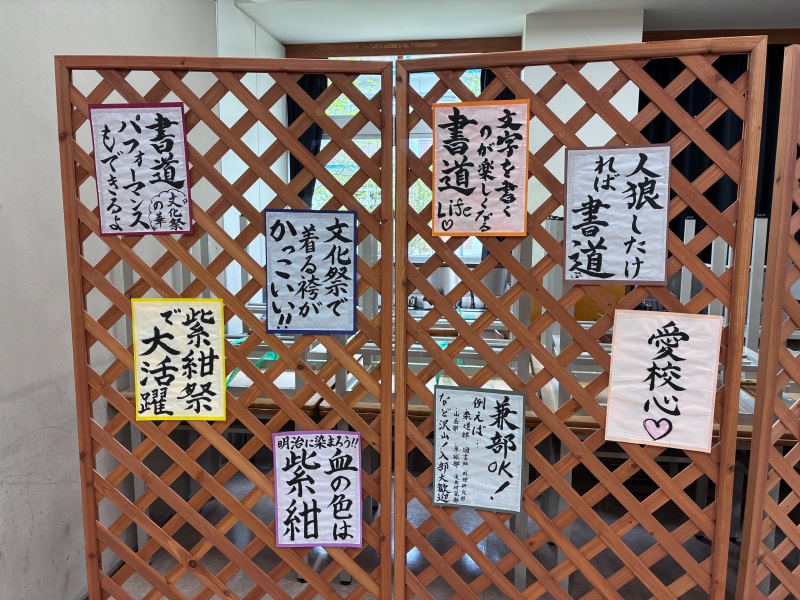 書道
パフォーマンス
もできるよ
文化祭
の華
文化祭で
着る袴が
かっこいい!!
紫紺祭
で大活躍
明治に染まろう!!
血の色は
紫紺
文字を書く
のが楽しくなる
書道
Life♡
人狼したけ
れば書道
愛校心♡
兼部OK!
例えば…
柔道部 図書班 料理研究部
山岳部 卓球部
など沢山!入部大歓迎